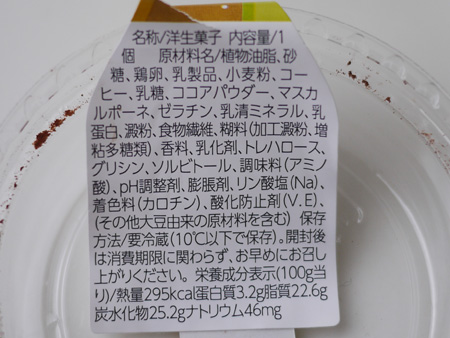 名称/洋生菓子 内容量/1
個 原材料名/植物油脂、砂
糖、鶏卵、乳製品、小麦粉、コー
ヒー、乳糖、ココアパウダー、マスカ
ルポーネ、ゼラチン、乳清ミネラル、乳
蛋白、澱粉、食物繊維、糊料(加工澱粉、増
粘多糖類)、香料、乳化剤、トレハロース、
グリシン、ソルビトール、調味料(アミノ
酸)、pH調整剤、膨脹剤、リン酸塩(Na)、
着色料(カロチン)、酸化防止剤(V.E)、
(その他大豆由来の原材料を含む) 保存
方法/要冷蔵(10℃以下で保存)。開封後
は消費期限に関わらず、お早めにお召し
上がりください。栄養成分表示(100g当
り)/熱量295kcal蛋白質3.2g脂質22.6g
炭水化物25.2gナトリウム46mg